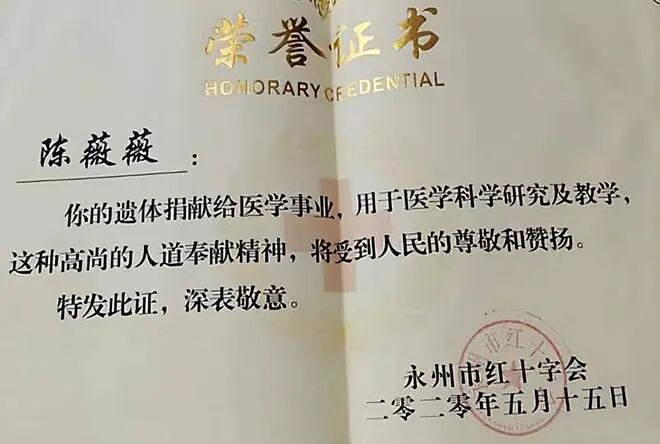 荣誉证书
HONORARY CREDENTIAL
陈薇薇：
你的遗体捐献给医学事业，用于医学科学研究及教学，
这种高尚的人道奉献精神，将受到人民的尊敬和赞扬。
特发此证，深表敬意。
永州市红十字会
二零二零年五月十五日